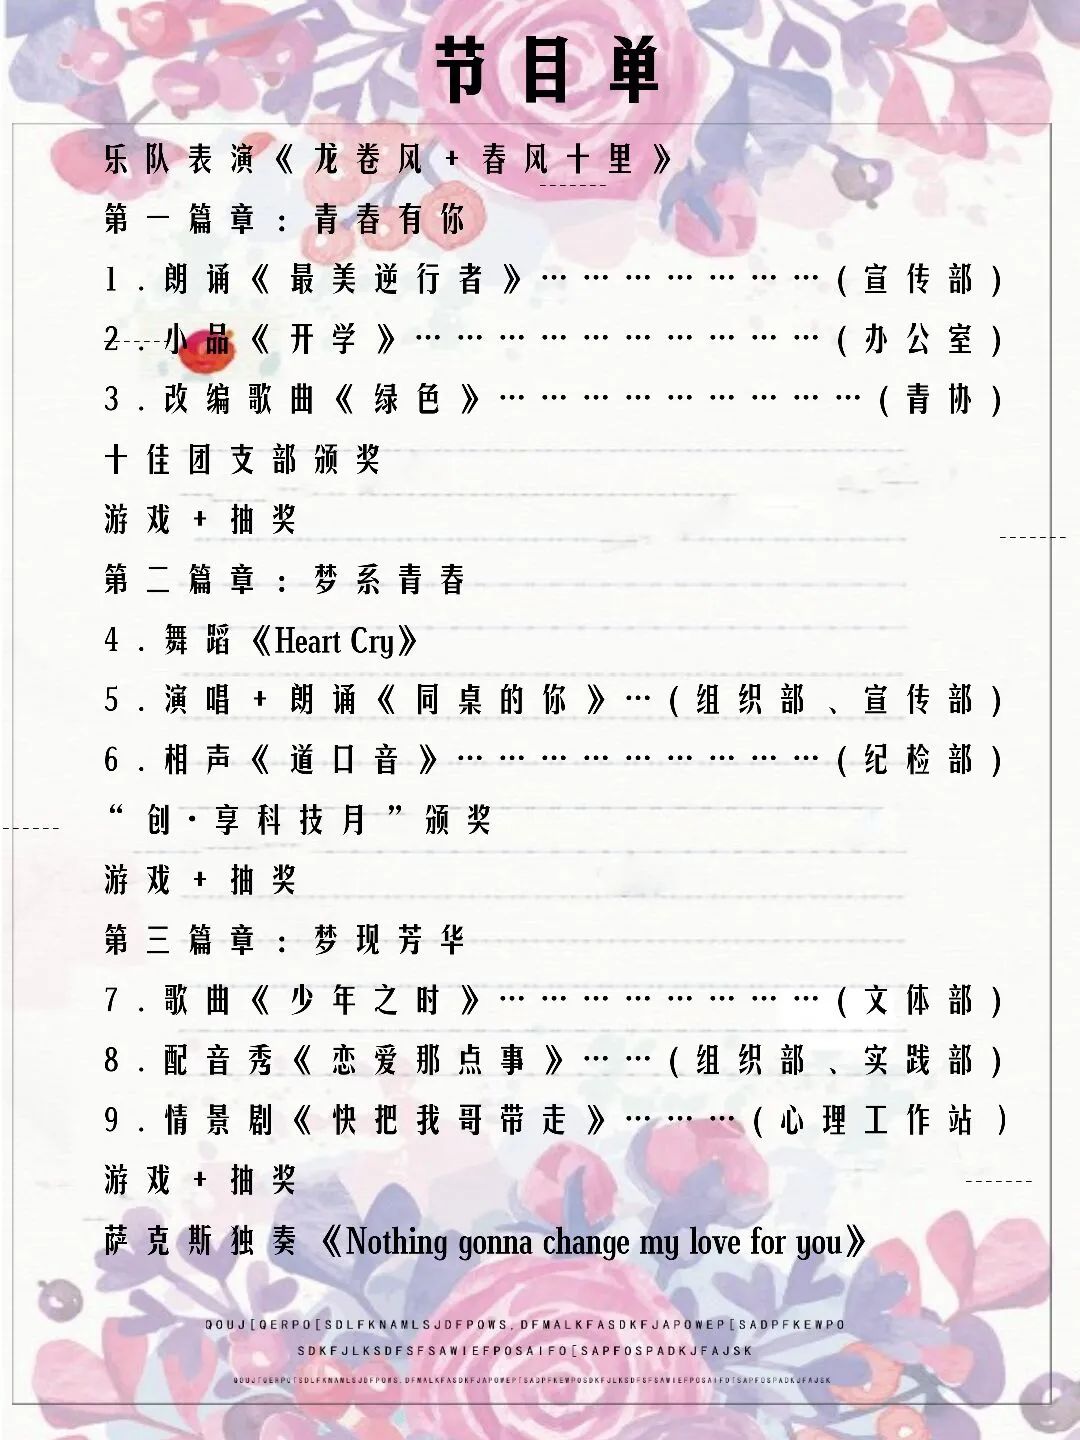 节目单
乐队表演《龙卷风+春风十里》
第一篇章：青春有你
1.朗诵《最美逆行者》…………………(宣传部)
2.小品《开学》…………………………(办公室)
3.改编歌曲《绿色》………………………(青协)
十佳团支部颁奖
游戏+抽奖
第二篇章：梦系青春
4.舞蹈《Heart Cry》
5.演唱+朗诵《同桌的你》…(组织部、宣传部)
6.相声《道口音》………………………(纪检部)
“创·享科技月”颁奖
游戏+抽奖
第三篇章：梦现芳华
7.歌曲《少年之时》……………………(文体部)
8.配音秀《恋爱那点事》……(组织部、实践部)
9.情景剧《快把我哥带走》………(心理工作站)
游戏+抽奖
萨克斯独奏《Nothing gonna change my love for you》
QOUJ[QERPO[SDLFKNAMLSJDFPOWS.DFMALKFASDKFJAPOWEP[SADPFKEWPO
SDKFJLKSDFSFSAWIEFPOSAIFO[SAPFOSPADKJFAJSK